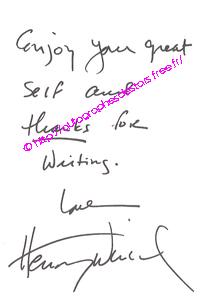 Enjoy your great
self and
thanks for
writing.
Love
© http://autographesdestars.free.fr/